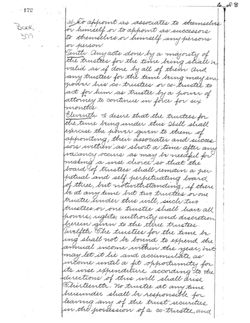 172
Book
& to appoint as associates to themselves
or himself or to appoint as successors
to themselves or himself any persons
or person
Tenth. Any acts done by a majority of
the trustees for the time being shall be
valid as if done by all of them and
any trustee for the time being may em
power his co-trustees or co-trustee to
act for him as trustee by a power of
attorney to continue in force for six
months
Eleventh. I desire that the trustees for
the time being under this Will shall
exercise the power given to them of
appointing their associates and succes
sors within as short a time after any
vacancy occurs as may be needful for
making a wise choice so that the
board of trustees shall remain a per
petual and self perpetuating board
of three, but notwithstanding, if there
be at any time but two trustees or one
trustee under this will, such two
trustees or one trustee shall have all
powers, rights, authority and discretion
herein given to the three trustees
Twelfth. The trustees for the time be
ing shall not be bound to expend the
annual income within the year, but
may let it lie and accumulate as
income until a fit opportunity for
its wise expenditure according to the
directions of this will shall arise
Thirteenth. No trustee at any time
hereunder shall be responsible for
leaving any of the trust securities
in the possession of a co-trustee, and